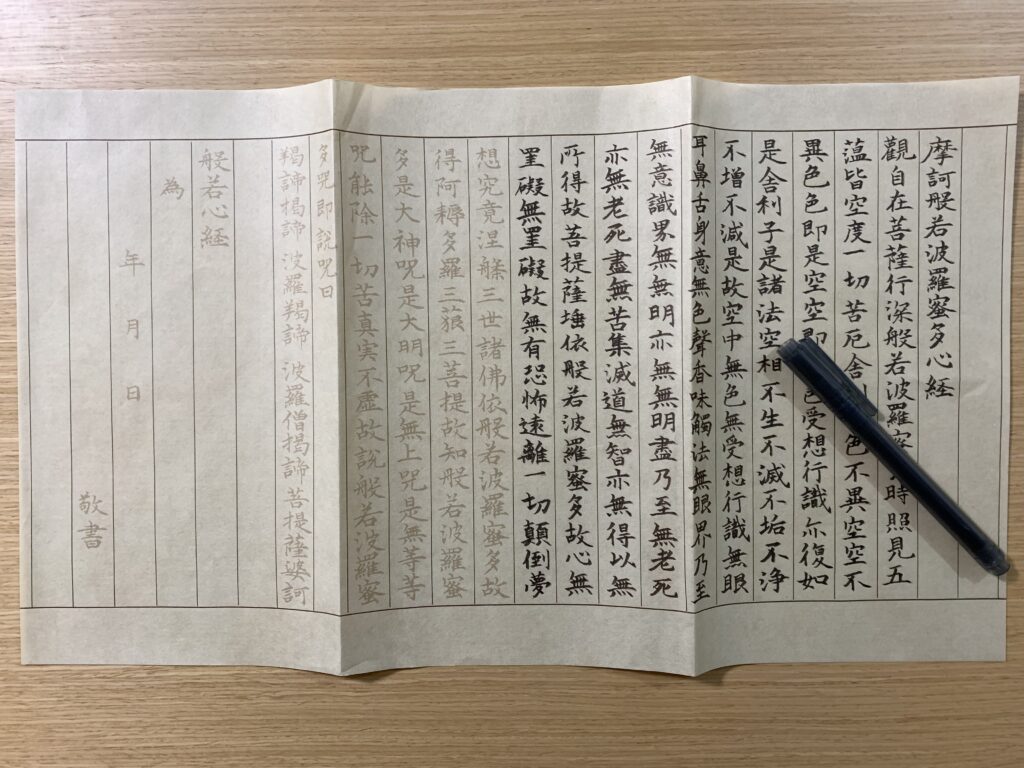 摩訶般若波羅蜜多心経
觀自在菩薩行深般若波羅蜜時照見五
蘊皆空度一切苦厄舍色不異空空不
異色色即是空空即色受想行識亦復如
是舍利子是諸法空相不生不滅不垢不浄
不增不減是故空中無色無受想行識無眼
耳鼻舌身意無色聲香味觸法無眼界乃至
無意識界無無明亦無無明盡乃至無老死
亦無老死盡無苦集滅道無智亦無得以無
所得故菩提薩埵依般若波羅蜜多故心無
罣礙無罣礙故無有恐怖遠離一切顛倒夢
想究竟涅槃三世諸佛依般若波羅蜜多故
得阿耨多羅三藐三菩提故知般若波羅蜜
多是大神呪是大明呪是無上呪是無等等
呪能除一切苦真実不虚故説般若波羅蜜
多呪即説呪曰
羯諦羯諦 波羅羯諦 波羅僧羯諦 菩提薩婆訶
般若心経
為
年 月 日
敬書